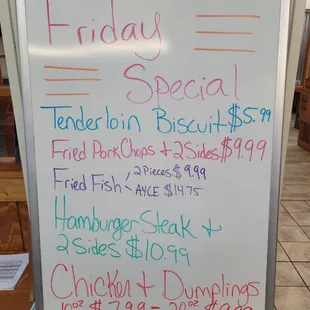 Friday
Special
Tenderloin Biscuit $5.99
Fried Pork Chops + 2 Sides $9.99
Fried Fish - 2 Pieces $9.99
AYCE $14.75
Hamburger Steak +
2 Sides $10.99
Chicken + Dumplings
10oz $7.99 - 20oz $9.99